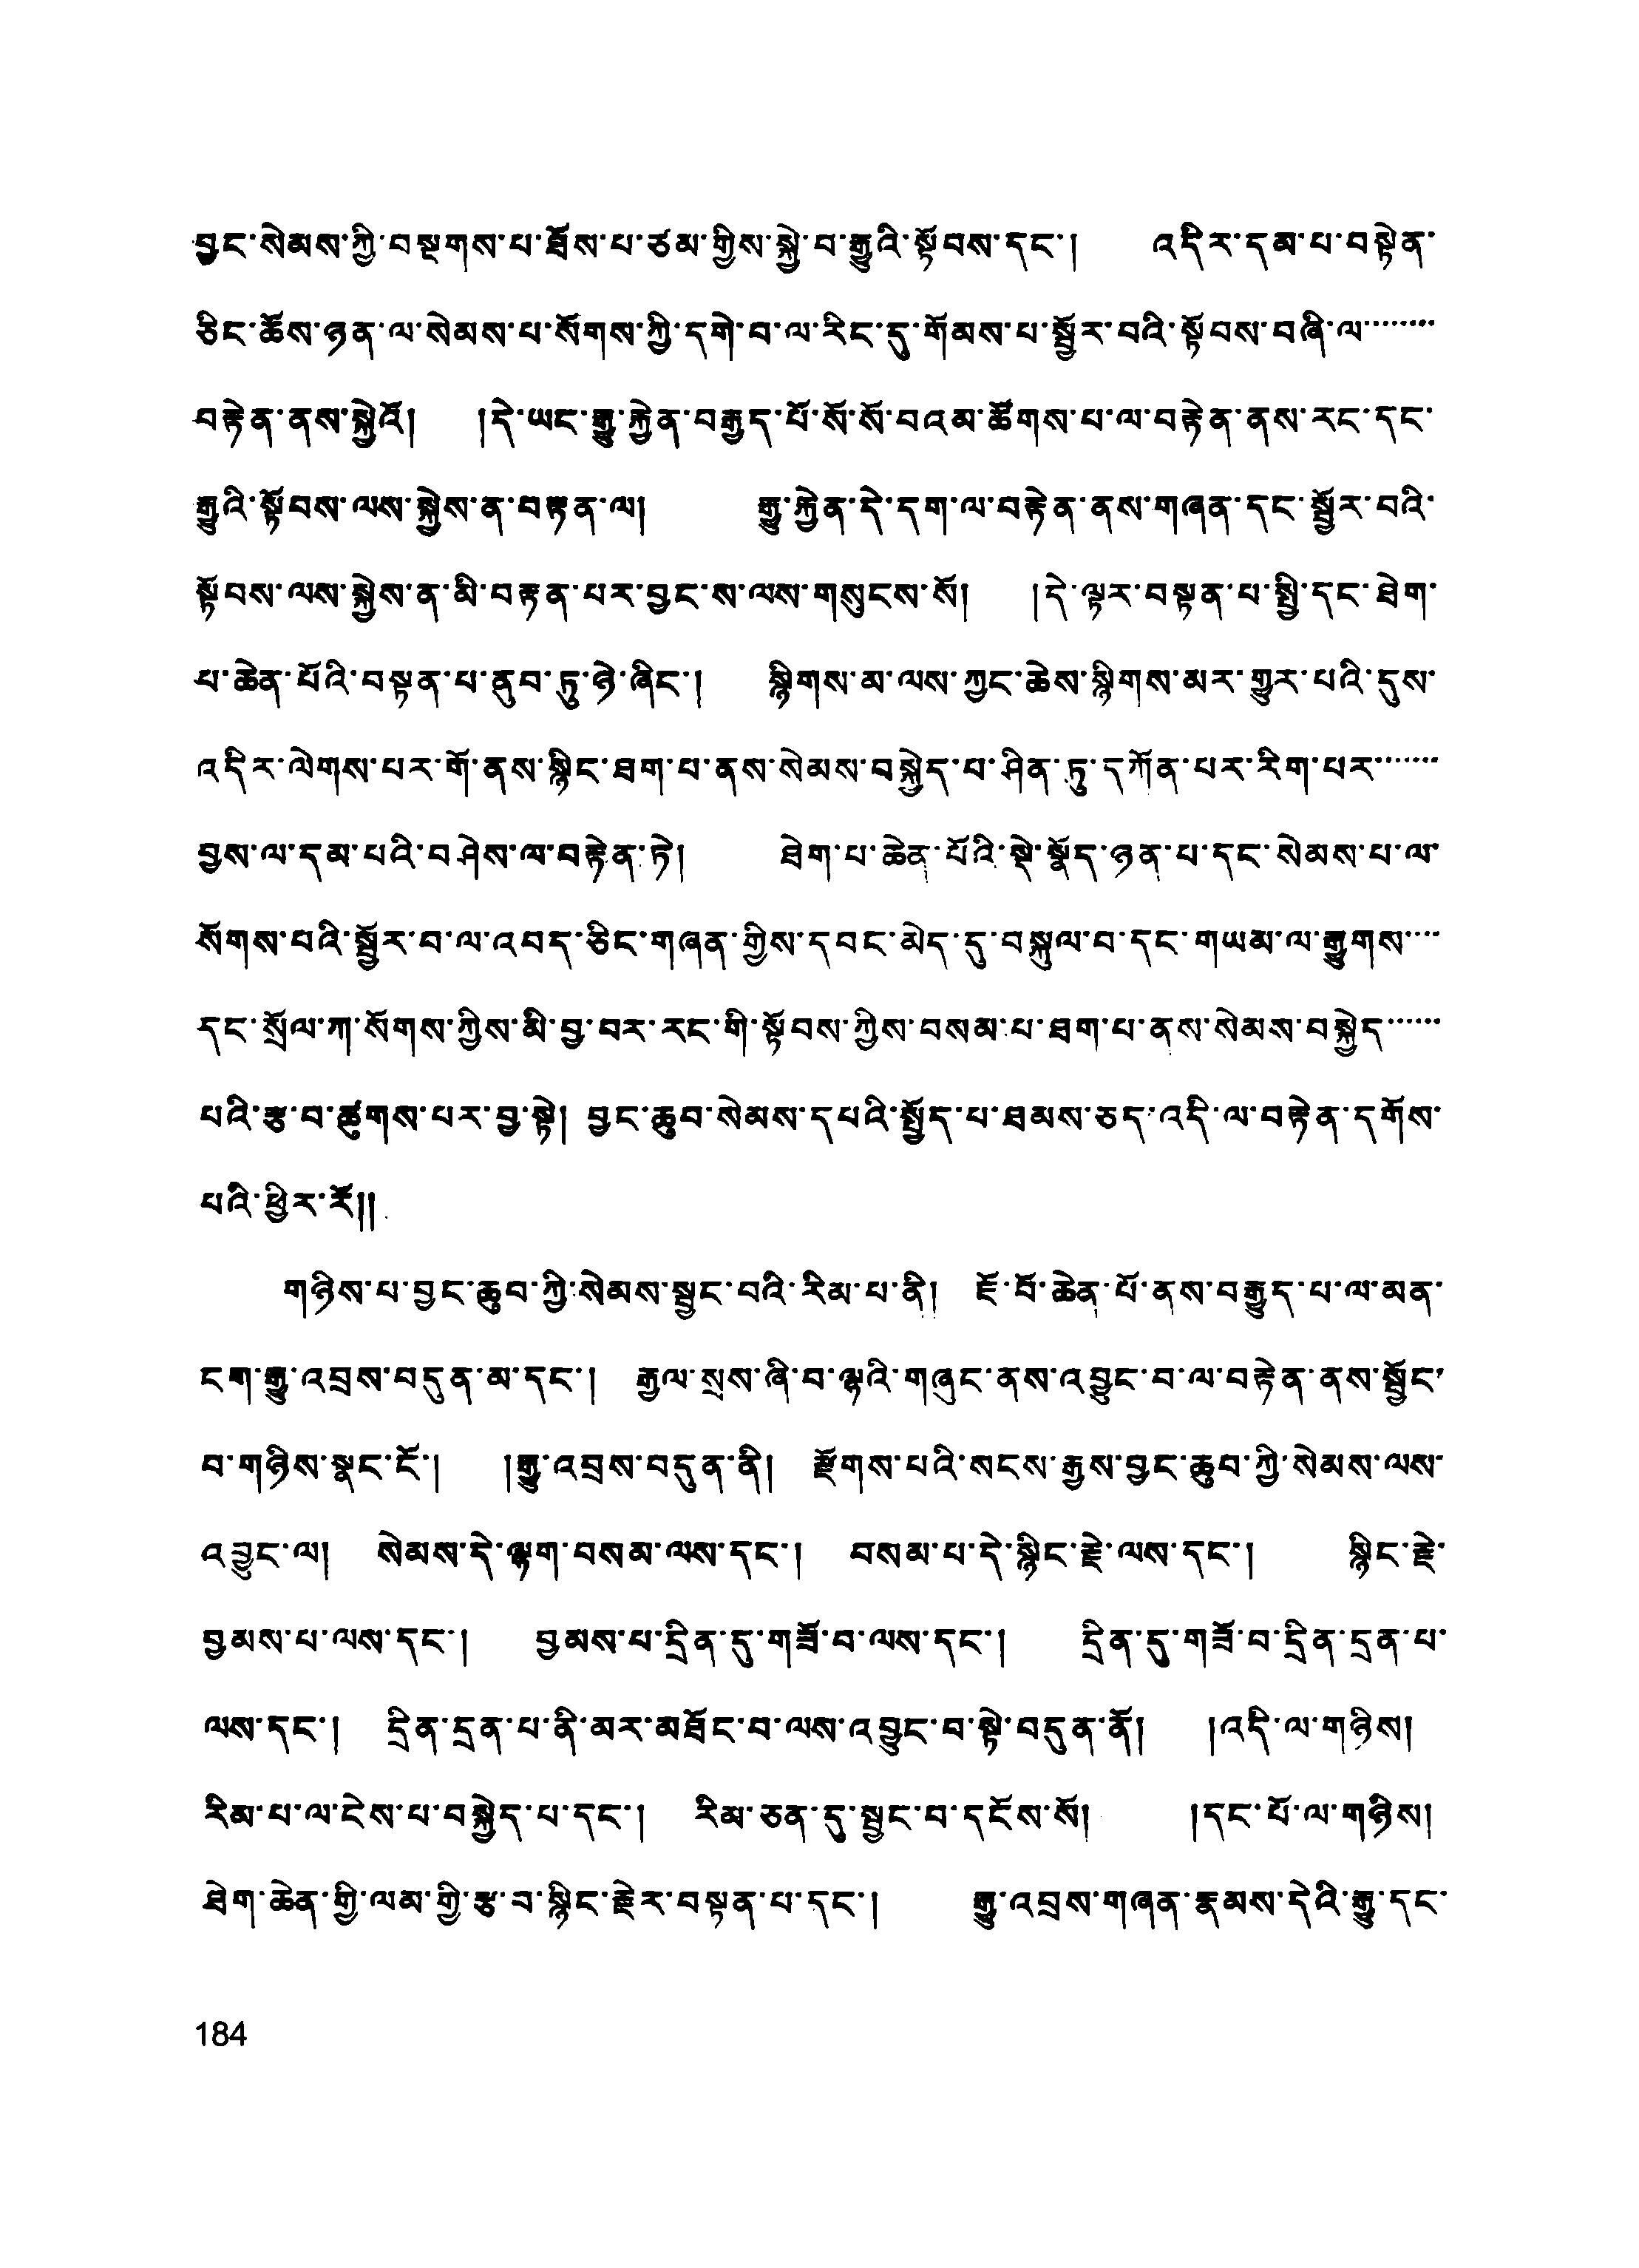 བྱང་སེམས་ཀྱི་བསྔགས་པ་ཐོས་པ་ཙམ་གྱིས་སྐྱེ་བ་རྒྱུའི་སྟོབས་དང་། འདིར་དམ་པ་བསྟེན་
ཅིང་ཆོས་ཉན་ལ་སེམས་པ་སོགས་ཀྱི་དགེ་བ་ལ་རིང་དུ་གོམས་པ་སྦྱོར་བའི་སྟོབས་བཞི་ལ་་་་་་་་
བརྟེན་ནས་སྐྱེའོ། །དེ་ཡང་རྒྱུ་རྐྱེན་བརྒྱད་པོ་སོ་སོ་བའམ་ཚོགས་པ་ལ་བརྟེན་ནས་རང་དང་
རྒྱུའི་སྟོབས་ལས་སྐྱེས་ན་བརྟན་ལ། རྒྱུ་རྐྱེན་དེ་དག་ལ་བརྟེན་ནས་གཞན་དང་སྦྱོར་བའི་
སྟོབས་ལས་སྐྱེས་ན་མི་བརྟན་པར་བྱང་ས་ལས་གསུངས་སོ། །དེ་ལྟར་བསྟན་པ་སྤྱི་དང་ཐེག་
པ་ཆེན་པོའི་བསྟན་པ་ནུབ་ཏུ་ཉེ་ཞིང་། སྙིགས་མ་ལས་ཀྱང་ཆེས་སྙིགས་མར་གྱུར་པའི་དུས་
འདིར་ལེགས་པར་གོ་ནས་སྙིང་ཐག་པ་ནས་སེམས་བསྐྱེད་པ་ཤིན་ཏུ་དཀོན་པར་རིག་པར་་་་་་་
བྱས་ལ་དམ་པའི་བཤེས་ལ་བརྟེན་ཏེ། ཐེག་པ་ཆེན་པོའི་སྡེ་སྣོད་ཉན་པ་དང་སེམས་པ་ལ་
སོགས་པའི་སྦྱོར་བ་ལ་འབད་ཅིང་གཞན་གྱིས་དབང་མེད་དུ་བསྐུལ་བ་དང་གཡམ་ལ་རྒྱུགས་་་་
དང་སྲོལ་ཀ་སོགས་ཀྱིས་མི་བྱ་བར་རང་གི་སྟོབས་ཀྱིས་བསམ་པ་ཐག་པ་ནས་སེམས་བསྐྱེད་་་་་་
པའི་རྩ་བ་ཚུགས་པར་བྱ་སྟེ། བྱང་ཆུབ་སེམས་དཔའི་སྤྱོད་པ་ཐམས་ཅད་འདི་ལ་བརྟེན་དགོས་
པའི་ཕྱིར་རོ།།
གཉིས་པ་བྱང་ཆུབ་ཀྱི་སེམས་སྦྱང་བའི་རིམ་པ་ནི། ཇོ་བོ་ཆེན་པོ་ནས་བརྒྱུད་པ་ལ་མན་
ངག་རྒྱུ་འབྲས་བདུན་མ་དང་། རྒྱལ་སྲས་ཞི་བ་ལྷའི་གཞུང་ནས་འབྱུང་བ་ལ་བརྟེན་ནས་སྦྱོང་
བ་གཉིས་སྣང་ངོ་། །རྒྱུ་འབྲས་བདུན་ནི། རྫོགས་པའི་སངས་རྒྱས་བྱང་ཆུབ་ཀྱི་སེམས་ལས་
འབྱུང་ལ། སེམས་དེ་ལྷག་བསམ་ལས་དང་། བསམ་པ་དེ་སྙིང་རྗེ་ལས་དང་། སྙིང་རྗེ་
བྱམས་པ་ལས་དང་། བྱམས་པ་དྲིན་དུ་གཟོ་བ་ལས་དང་། དྲིན་དུ་གཟོ་བ་དྲིན་དྲན་པ་
ལས་དང་། དྲིན་དྲན་པ་ནི་མར་མཐོང་བ་ལས་འབྱུང་བ་སྟེ་བདུན་ནོ། །འདི་ལ་གཉིས།
རིམ་པ་ལ་ངེས་པ་བསྐྱེད་པ་དང་། རིམ་ཅན་དུ་སྦྱང་བ་དངོས་སོ། །དང་པོ་ལ་གཉིས།
ཐེག་ཆེན་གྱི་ལམ་གྱི་རྩ་བ་སྙིང་རྗེར་བསྟན་པ་དང་། རྒྱུ་འབྲས་གཞན་རྣམས་དེའི་རྒྱུ་དང་
184